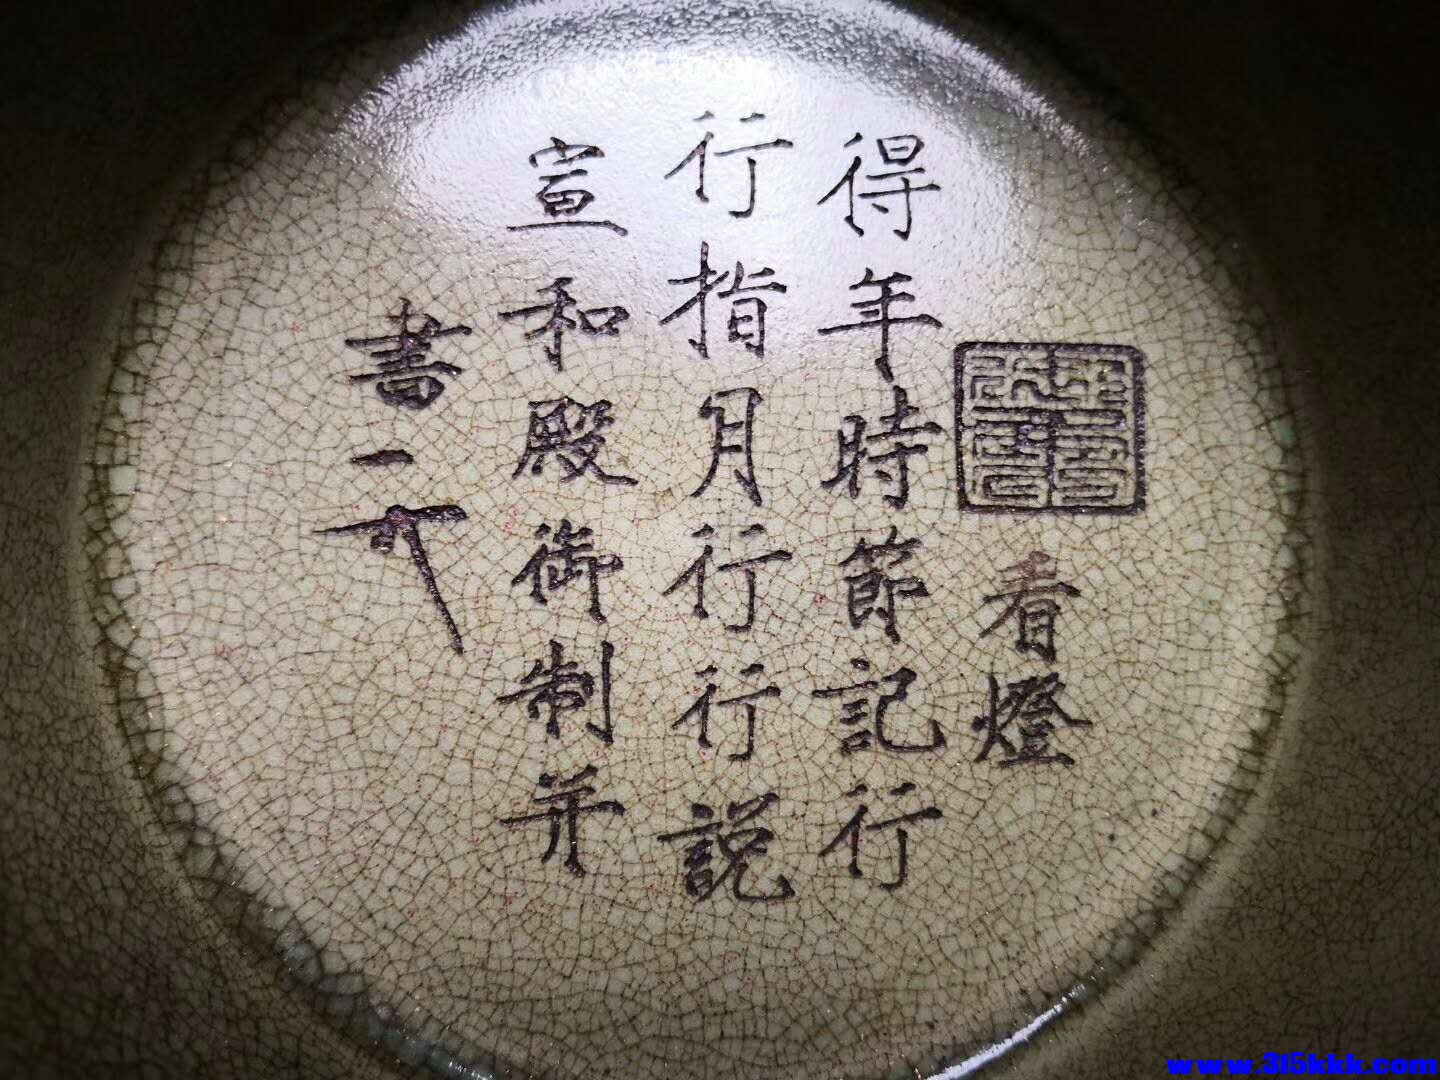 看燈
得年時節記行
行指月行行說
宣和殿御制并
書
www.315kkk.com